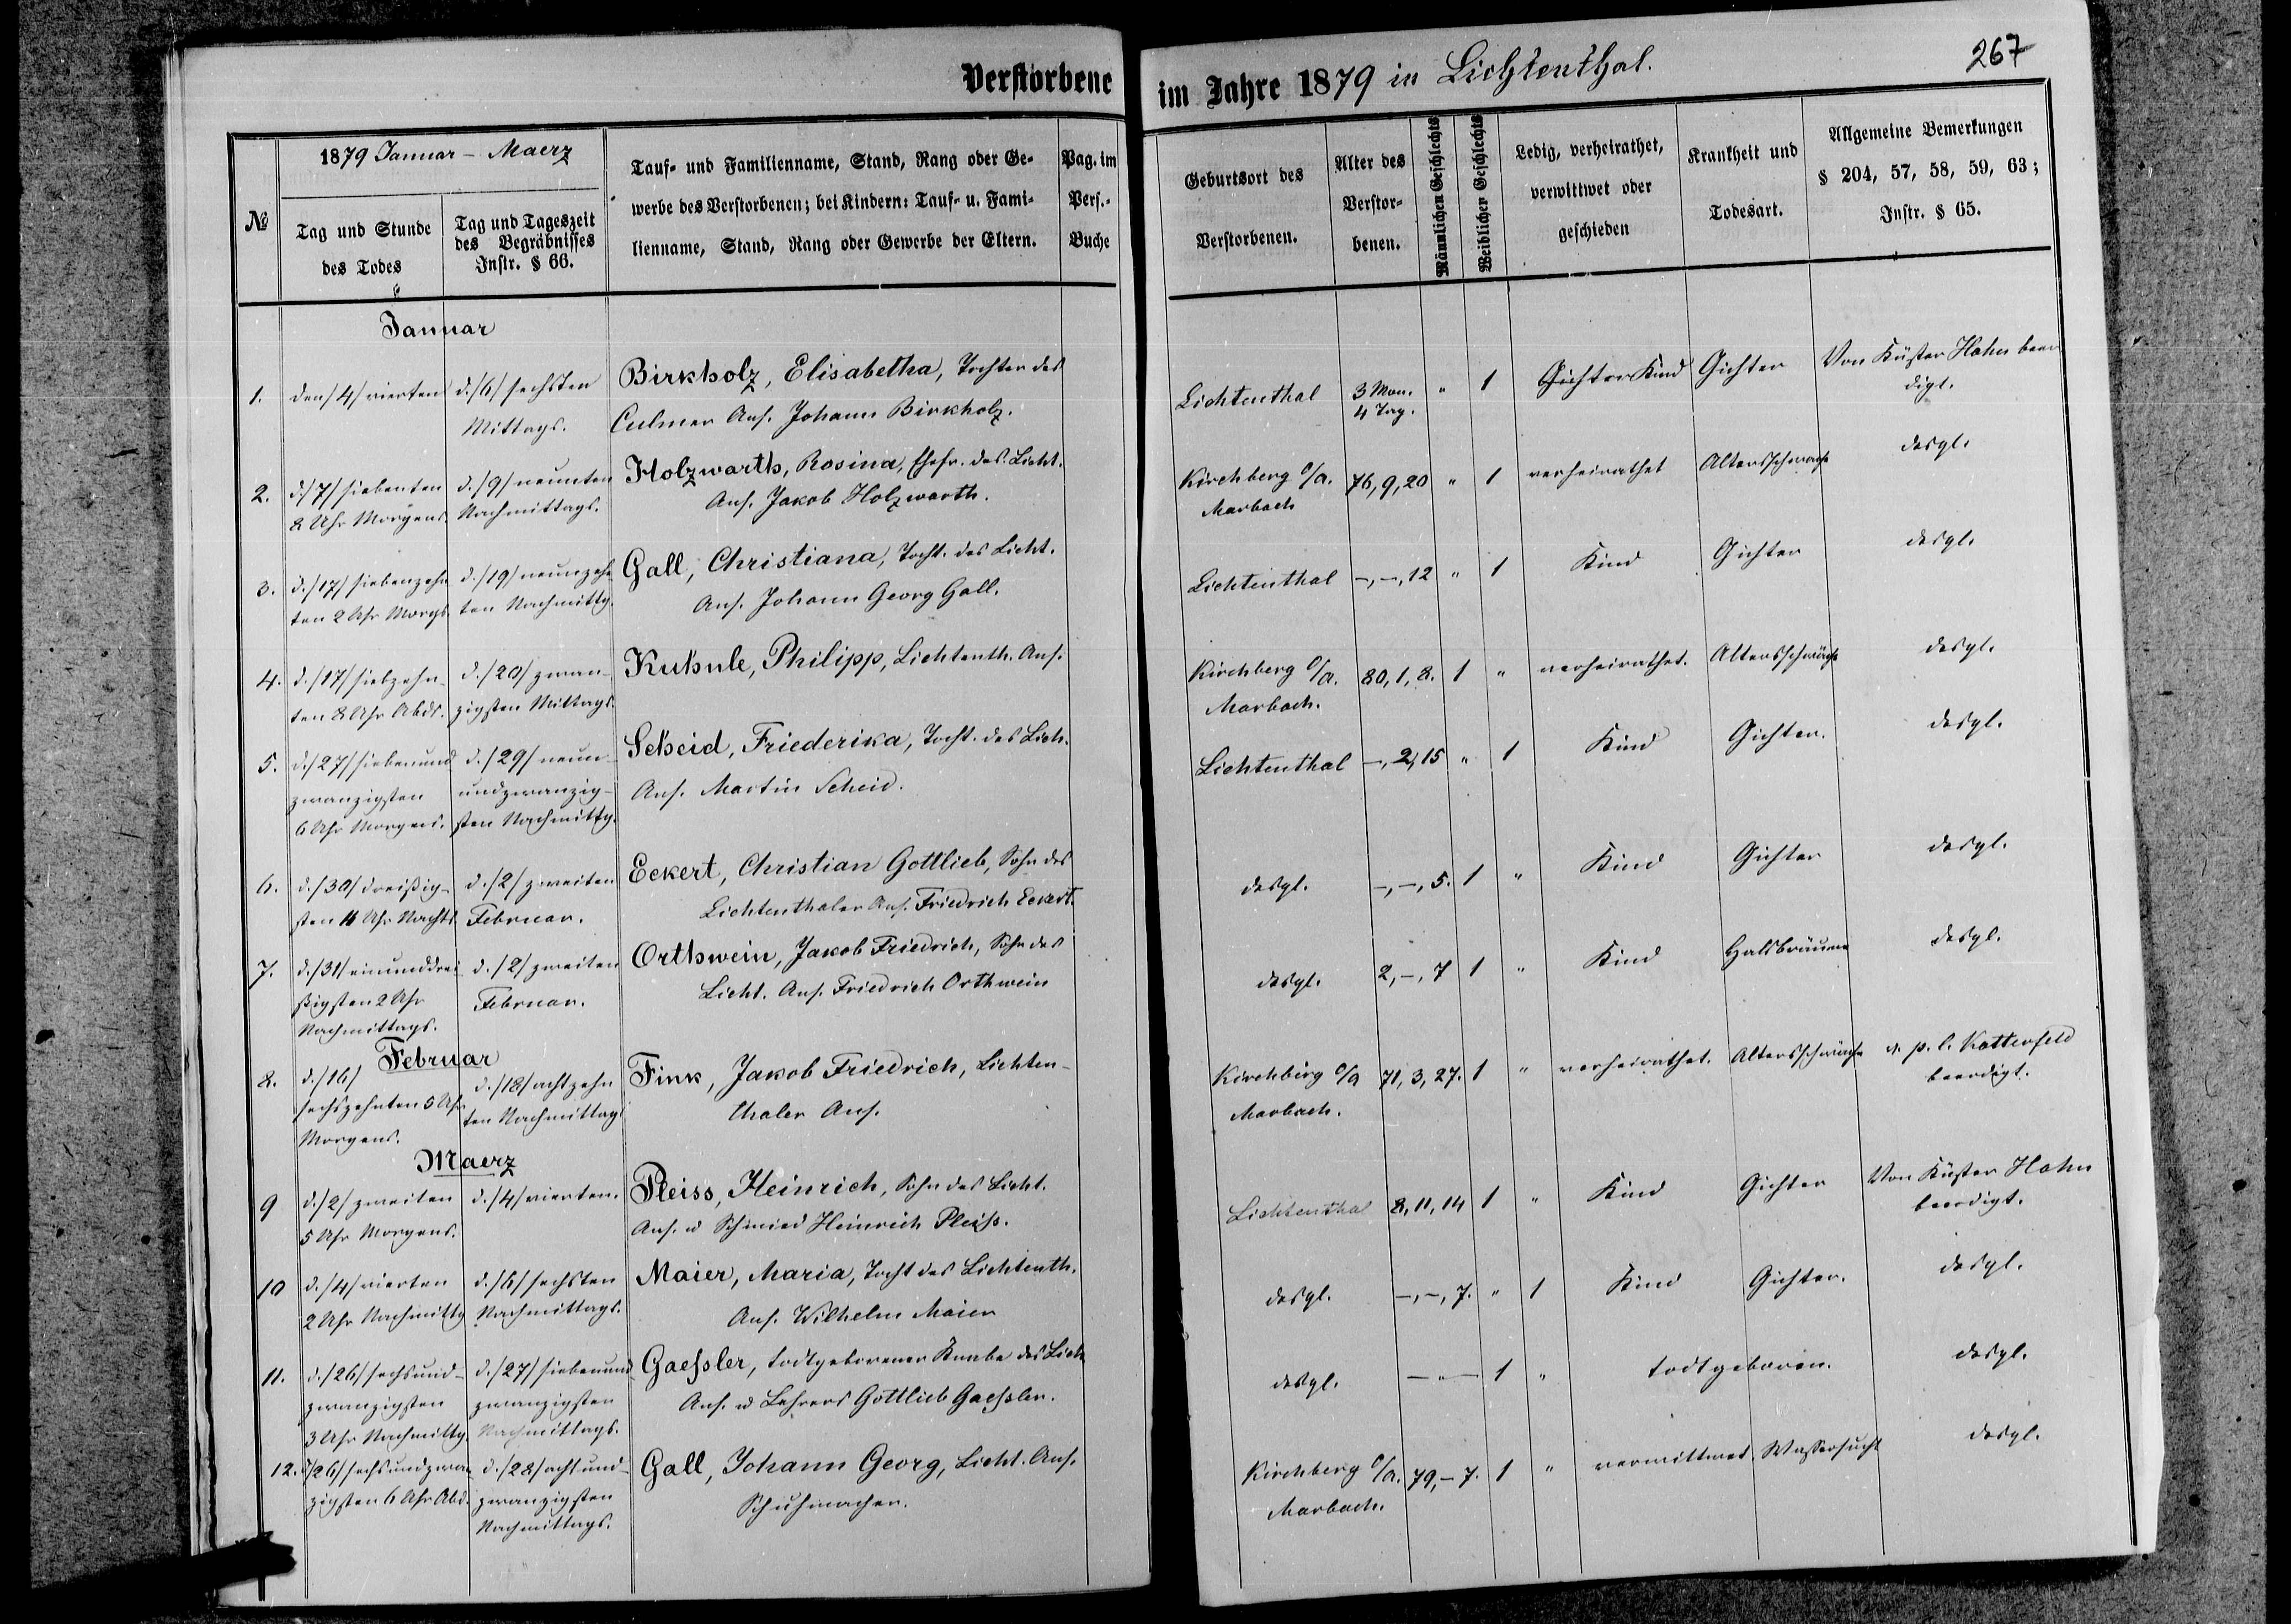 Verstorbene im Jahre 1879 in Lichtenthal.
267
№
1879 Januar - Maerz
Tag und Stunde
des Todes
Tag und Tageszeit
des Begräbnisses
Instr. § 66.
Tauf- und Familienname, Stand, Rang oder Ge-
werbe des Verstorbenen; bei Kindern: Tauf- u. Fami-
lienname, Stand, Rang oder Gewerbe der Eltern.
Pag. im
Pers.-
Buche
Geburtsort des
Verstorbenen.
Alter des
Verstor-
benen.
Männlichen Geschlechts
Weiblichen Geschlechts
Ledig, verheirathet,
verwittwet oder
geschieden
Krankheit und
Todesart.
Allgemeine Bemerkungen
§ 204, 57, 58, 59, 63;
Instr. § 65.
Januar
1. den /4/ vierten d. /6/ sechsten Birkholz, Elisabetha, Tochter des Lichtenthal 3 Mon. " 1 Kind Gichter Von Küster Hahn beer
Mittags. Culmer Ans. Johann Birkholz. 4 Tag. digt.
2. d. /7/ siebenten d. /9/ neunten Holzwarth, Rosina, Ehefr. des Licht. Kirchberg O/a. 76, 9, 20 " 1 verheirathet Altersschwäche desgl.
8 Uhr Morgens. Nachmittags. Ans. Jakob Holzwarth. Marbach
3. d. /17/ siebenzehn d. /19/ neunzehn Gall, Christiana, Tocht. des Licht. Lichtenthal -, -, 12 " 1 Kind Gichter desgl.
ten 2 Uhr Morgs. ten Nachmittg. Ans. Johann Georg Gall.
4. d. /17/ siebzehn- d. /20/ zwan- Kuhnle, Philipp, Lichtenth. Ans. Kirchberg O/a. 80, 1, 8. 1 " verheirathet. Altersschwäche desgl.
ten 8 Uhr Abds. zigsten Mittags. Marbach.
5. d. /27/ siebenund d. /29/ neun- Scheid, Friederika, Tocht. des Lich. Lichtenthal -, 2, 15 " 1 Kind Gichter. desgl.
zwanzigsten undzwanzig- Ans. Martin Scheid.
6 Uhr Morgens. sten Nachmittg.
6. d. /30/ dreißig- d. /2/ zweiten Eckert, Christian Gottlieb, Sohn des desgl. -, -, 5. 1 " Kind Gichter desgl.
sten 11 Uhr Nachts. Februar. Lichtenthaler Ans. Friedrich Eckert.
7. d. /31/ einunddrei d. /2/ zweiten Orthwein, Jakob Friedrich, Sohn des desgl. 2, -, 7 1 " Kind Halsbräune desgl.
ßigsten 2 Uhr Februar. Licht. Ans. Friedrich Orthwein
Nachmittags.
Februar
8. d. /16/ d. /18/ achtzehn Fink, Jakob Friedrich, Lichten- Kirchberg O/a 71, 3, 27. 1 " verheirathet. Altersschwäche v. p. l. Katterfeld
sechszehnten 5 Uhr ten Nachmittags thaler Ans. Marbach. beerdigt.
Morgens.
Maerz
9 d. /2/ zweiten d. /4/ vierten. Pleiss, Heinrich, Sohn des Licht. Lichtenthal 8, 11, 14 1 " Kind Gichter Von Küster Hahn
5 Uhr Morgens. Ans. u Schmied Heinrich Pleiß. beerdigt.
10 d. /4/ vierten d. /6/ sechsten Maier, Maria, Tocht des Lichtenth. desgl. -, -, 7. " 1 Kind Gichter. desgl.
2 Uhr Nachmittg Nachmittags. Ans. Wilhelm Maier
11. d. /26/ sechsund- d. /27/ siebenund Gaeßler, todtgeborener Knabe des Lich desgl. - " - 1 " todtgeboren. desgl.
zwanzigsten zwanzigsten Ans. u Lehrers Gottlieb Gaeßler.
3 Uhr Nachmittg. Nachmittags.
12. d. /26/ sechsundzwan d. /28/ achtund- Gall, Johann Georg, Licht. Ans. Kirchberg O/a. 79, - 7. 1 " verwittwet. Wassersucht desgl.
zigsten 6 Uhr Abd. zwanzigsten Schuhmacher. Marbach.
Nachmittags.